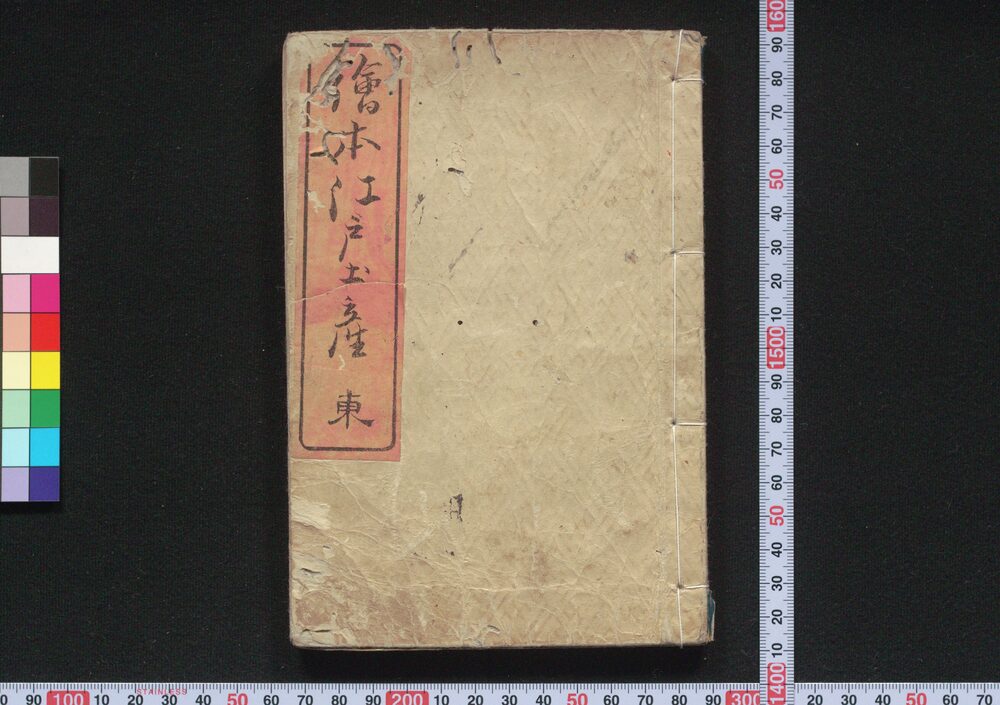 繪本江戸土産 東
STAINLESS
1600
90
80
70
60
50
40
30
20
10
1500
90
80
70
60
50
40
30
20
10
1400
0 90 100 10 20 30 40 50 60 70 80 90 200 10 20 30 40 50 60 70 80 90 300 10 20 30 40 50 60 70